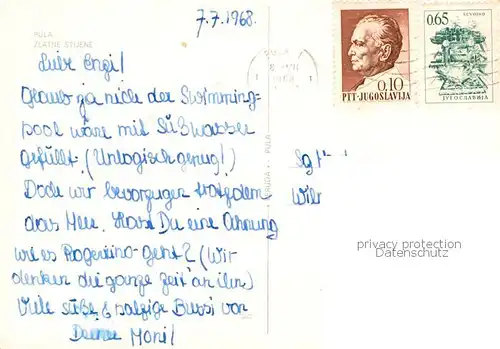 7.7.1968.
PULA
ZLATNE STIJENE
Liebe Engi!
Glaub ja nich der Swimming-
pool wäre mit Süßwasser
gefüllt. (Unlogisch genug!)
Doch wir bevorzugen trotzdem
das Meer. Hast Du eine Ahnung
wie es Rogerino geht? (Wir
denken die ganze Zeit an ihn)
Viele süße & salzige Bussi von
Moni!
PULA
0.10
PTT-JUGOSLAVIJA
0.65
JUGOSLAVIJA
privacy protection
Datenschutz